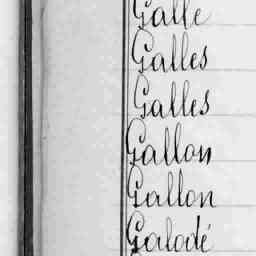 Galle
Galles
Galles
Gallon
Gallon
Galodé